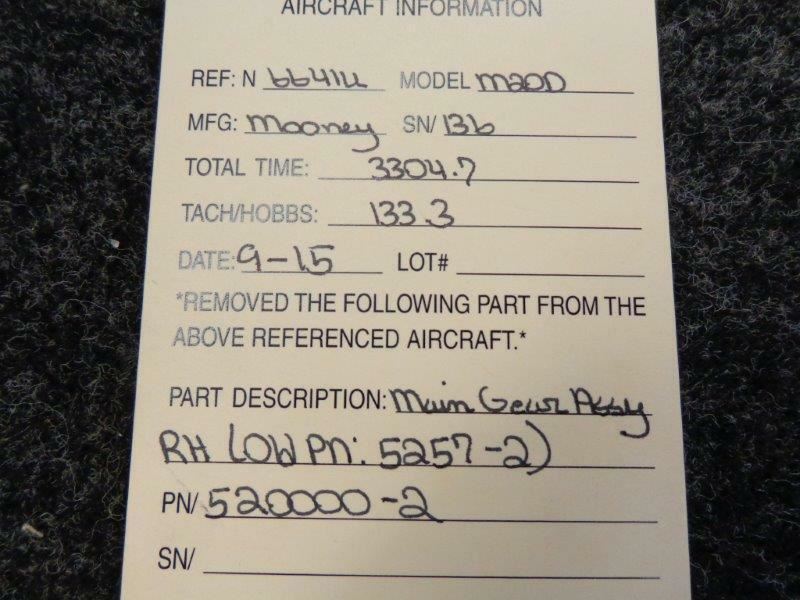 AIRCRAFT INFORMATION
REF: N 6641U MODEL M20D
MFG: Mooney SN/ 136
TOTAL TIME: 3304.7
TACH/HOBBS: 133.3
DATE: 9-15 LOT#
*REMOVED THE FOLLOWING PART FROM THE
ABOVE REFERENCED AIRCRAFT.*
PART DESCRIPTION: Main Gear Assy
RH (OLD PN: 5257-2)
PN/ 520000-2
SN/